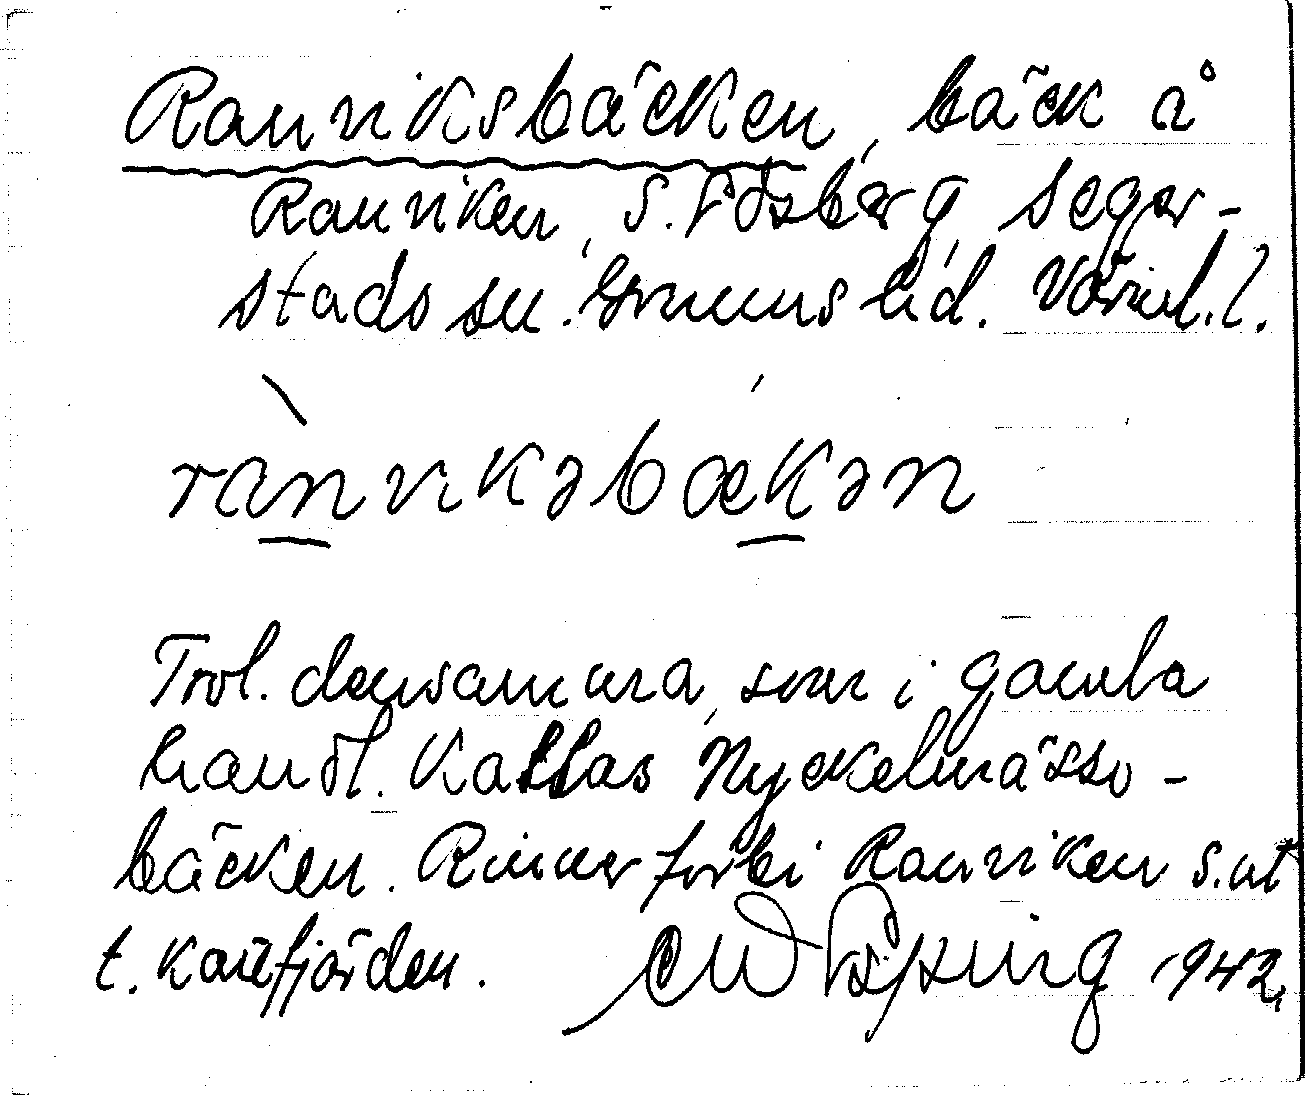 Ranviksbäcken, bäck å
Ranviken, S. Vösberg, Seger-
stads sn. Grums hd. Värml. l.
rànvikəbækən
Trol. densamma, som i gamla
handl. kallas Nyckelmässo-
bäcken. Rinner förbi Ranviken s. ut
t. Kattfjorden.
1942.